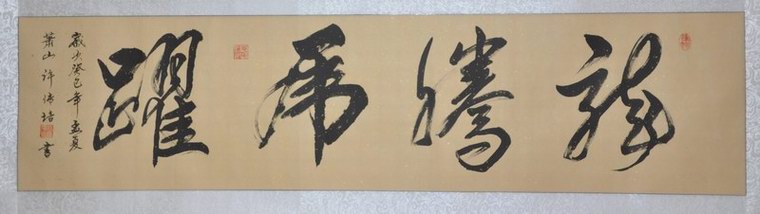 龍騰虎躍
歲次癸巳年孟夏
蕭山許傳培書